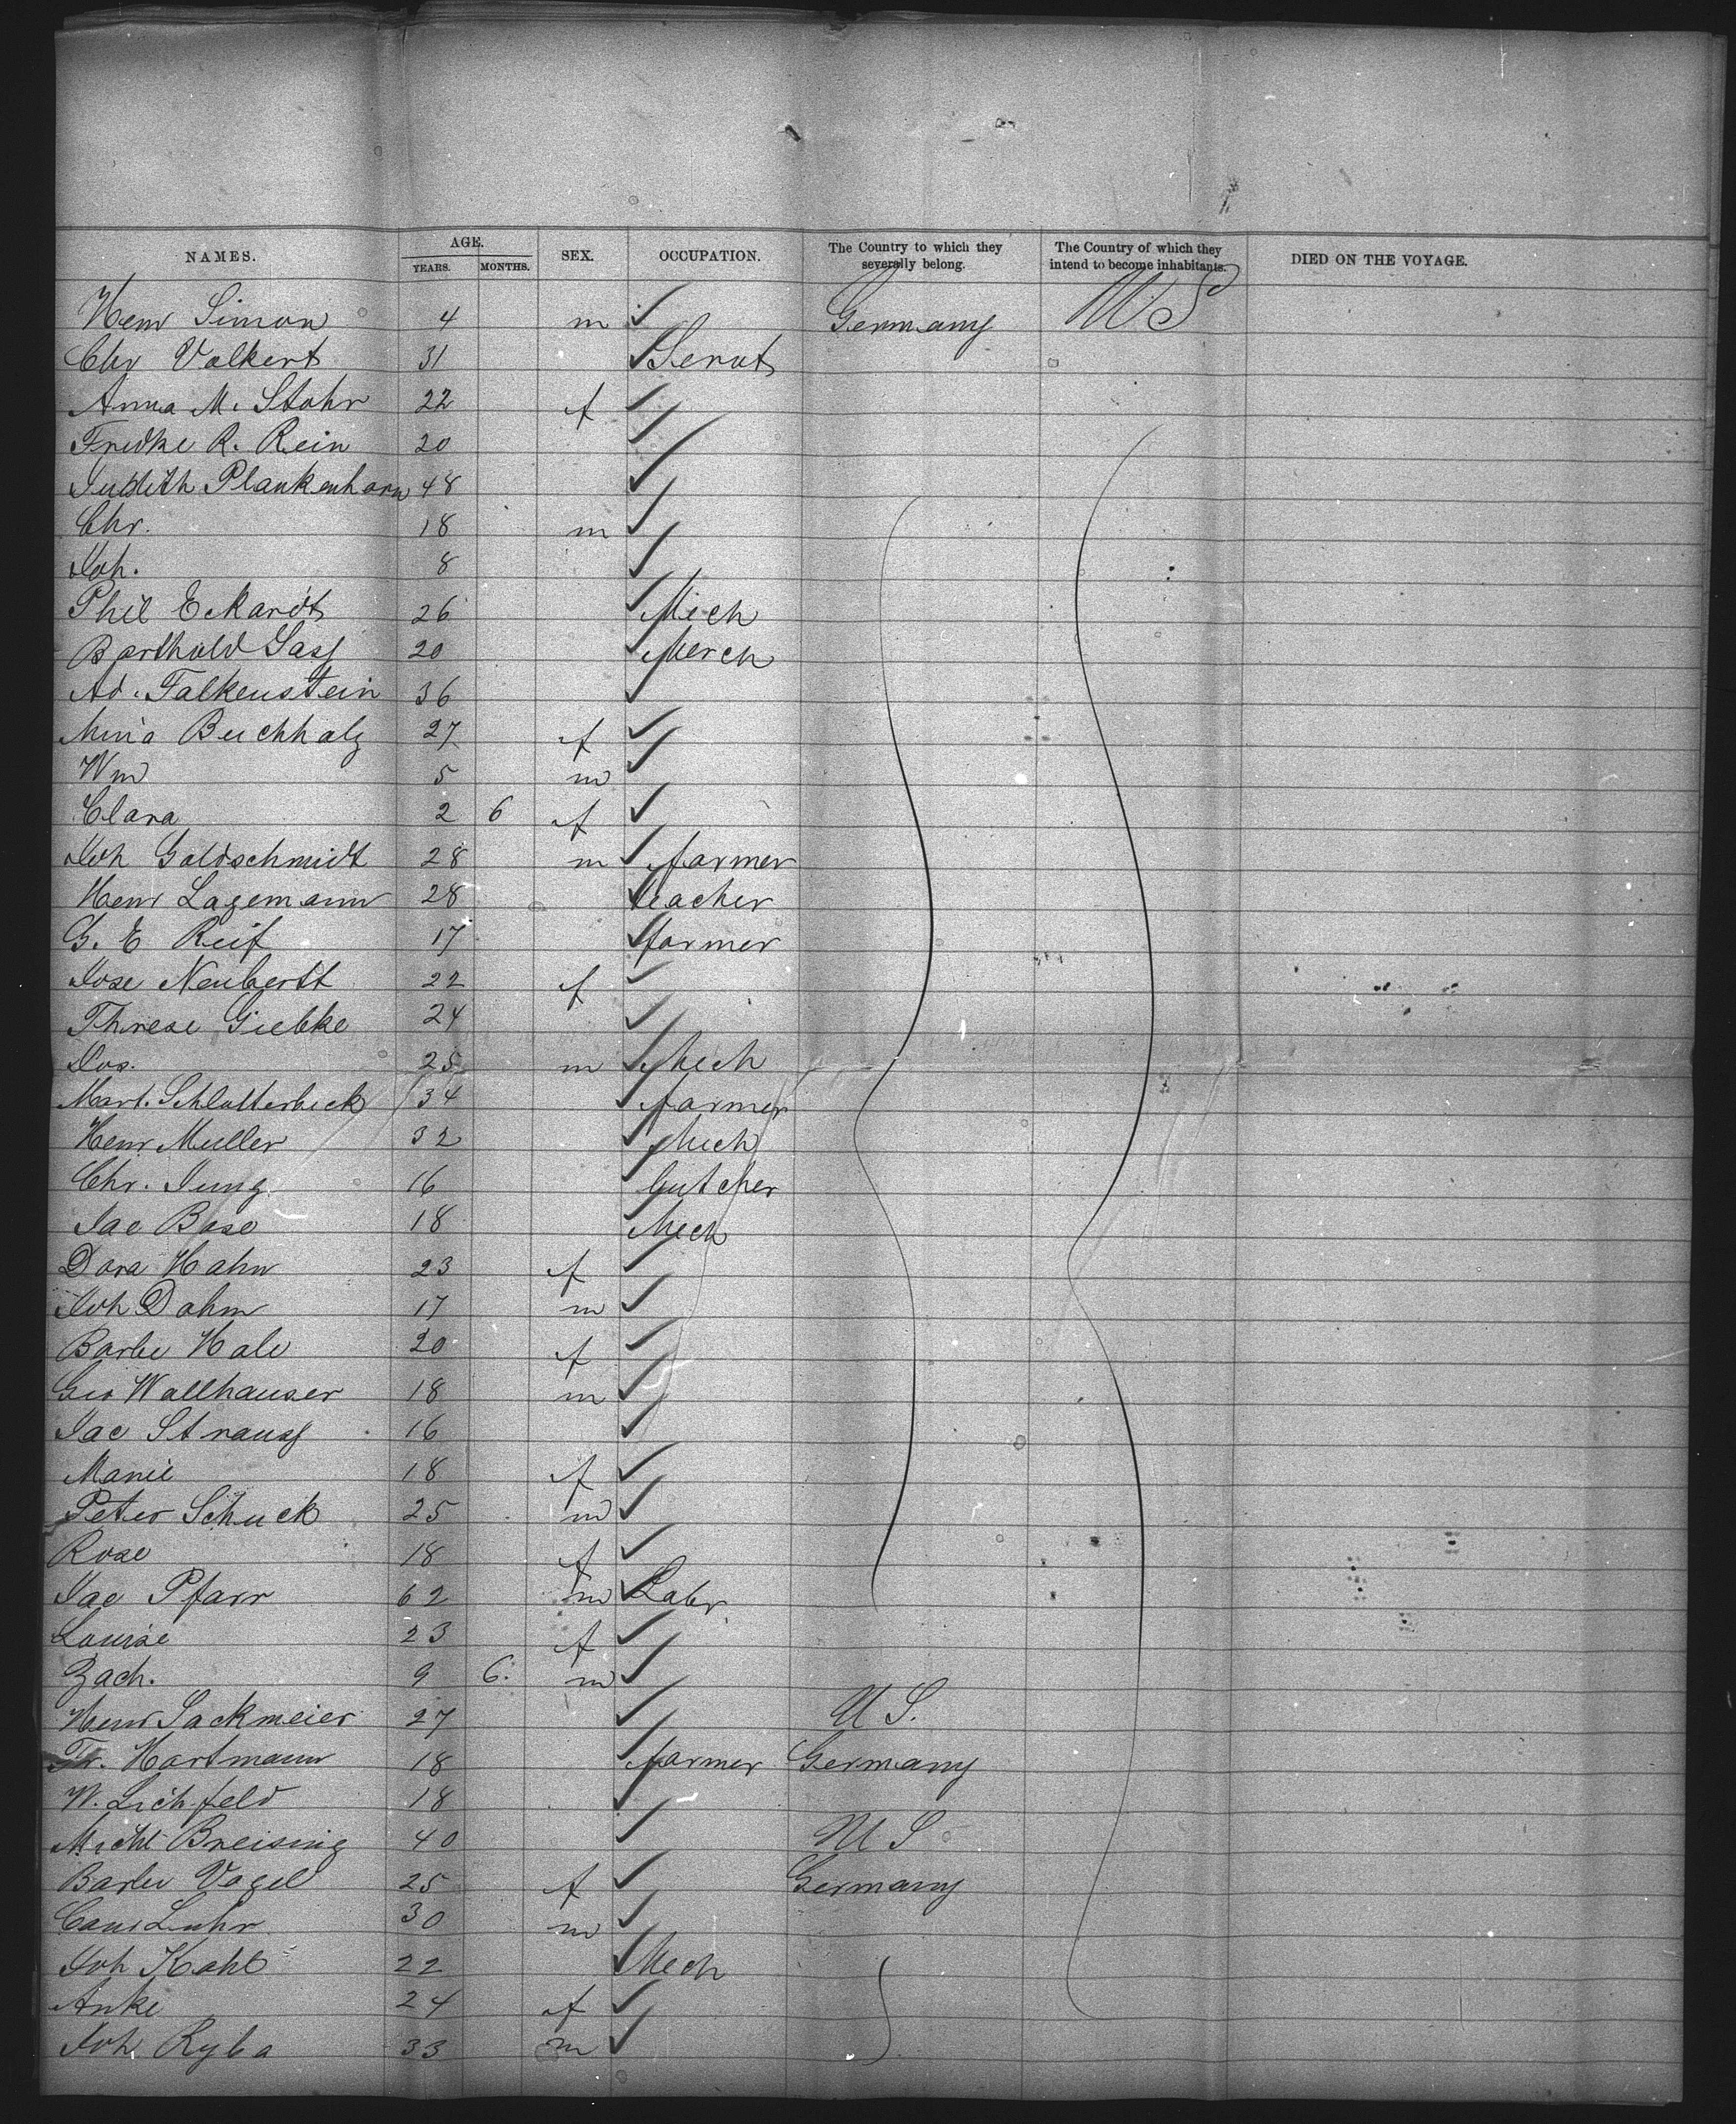 NAMES. AGE. YEARS. MONTHS. SEX. OCCUPATION. The Country to which they severally belong. The Country of which they intend to become inhabitants. DIED ON THE VOYAGE.
Henr Simon 4 m Germany U S
Chr Volkert 31 Servt
Anna M. Stohr 22 f
Fredke R. Rein 20
Judith Plankenhorn 48
Chr. 18 m
Joh. 8
Phil Eckardt 26 Mech
Barthold Sass 20 Merch
Ad. Falkenstein 36
Mina Buchholz 27 f
Wm 5 m
Clara 2 6 f
Joh Goldschmidt 28 m farmer
Henr Lagemann 28 teacher
G. E Reif 17 farmer
Jose Neubertt 22 f
Threse Giebke 24
Jos. 25 m Mech
Mart. Schlotterbeck 34 farmer
Henr Muller 32 Mech
Chr. Jung 16 butcher
Jac Base 18 Mech
Dora Hahn 23 f
Joh Dahm 17 m
Barbe 20 f
Geo Wallhauser 18 m
Jac Strauss 16
Marie 18 f
Peter Schuck 25 m
Rose 18 f
Jac Pfarr 62 m Labr
Louise 23 f
Zach. 9 6. m
Henr Sackmeier 27 U S.
Fr. Hartmann 18 farmer Germany
W. Lichfeld 18
Michl Breising 40 U S
Barbe Vogel 25 f Germany
Luhr 30 m
Joh Kahl 22 Mech
Anke 24 f
Joh Ryba 33 m